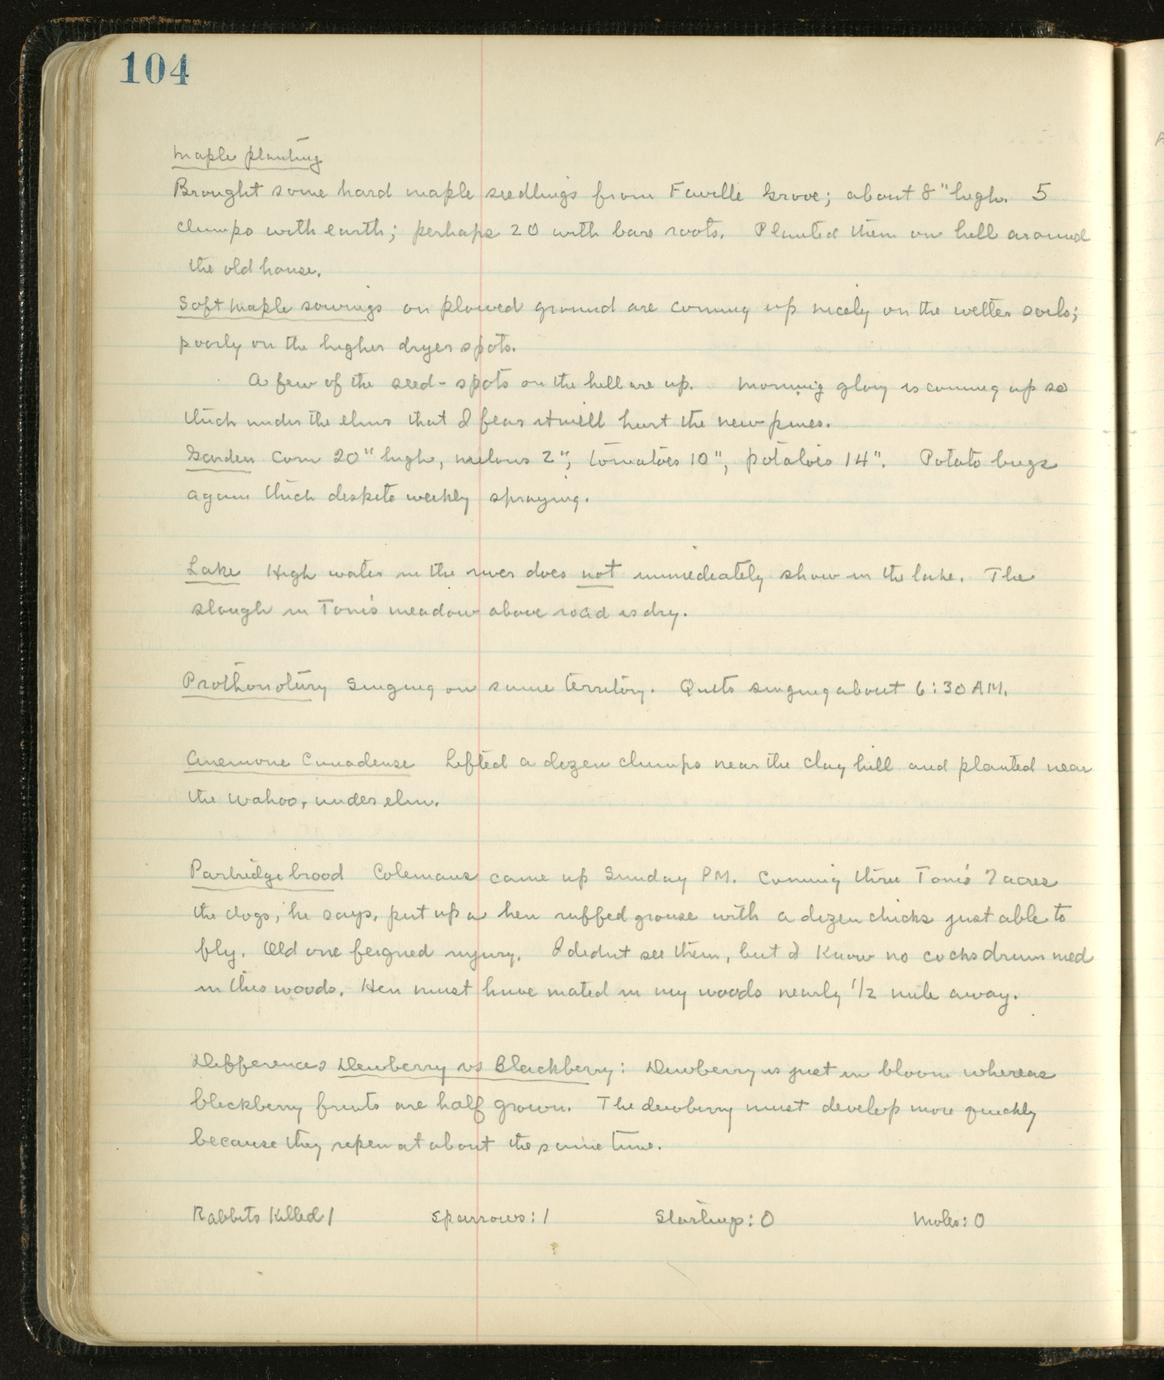 104
Maple planting
Brought some hard maple seedlings from Faville Grove; about 8" high. 5
clumps with earth; perhaps 20 with bare roots. Planted them on hill around
the old house.
Soft maple sowings on plowed ground are coming up nicely on the wetter soils;
poorly on the higher dryer spots.
A few of the seed-spots on the hill are up. Morning glory is coming up so
thick under the elms that I fear it will hurt the new pines.
Garden Corn 20" high, melons 2", tomatoes 10", potatoes 14". Potato bugs
again thick despite weekly spraying.
Lake High water in the river does not immediately show in the lake. The
slough in Tom's meadow above road is dry.
Prothonotary Singing on same territory. Quits singing about 6:30 AM.
Anemone Canadense Lifted a dozen clumps near the clay hill and planted near
the Wahoo, under elm.
Partridge brood Colemans came up Sunday PM. Coming thru Tom's 7 acres
the dogs, he says, put up a hen ruffed grouse with a dozen chicks just able to
fly. Old one feigned injury. I didnt see them, but I Know no cocks drummed
in this woods. Hen must have mated in my woods nearly 1/2 mile away.
Differences Dewberry vs Blackberry: Dewberry is just in bloom whereas
blackberry fruits are half grown. The dewberry must develop more quickly
because they ripen at about the same time.
Rabbits Killed 1 Sparrows: 1 Starlings: 0 Moles: 0